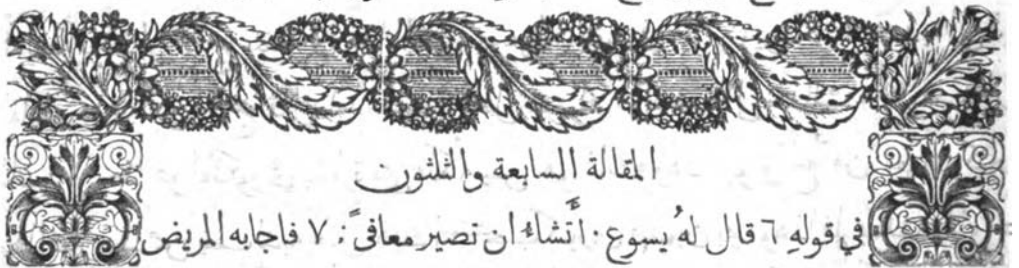 المقالة السابعة والثلثون
في قولهِ ٦ قال لهُ يسوع · أَتشاءُ ان تصير معافىً ; ٧ فاجابه المريض